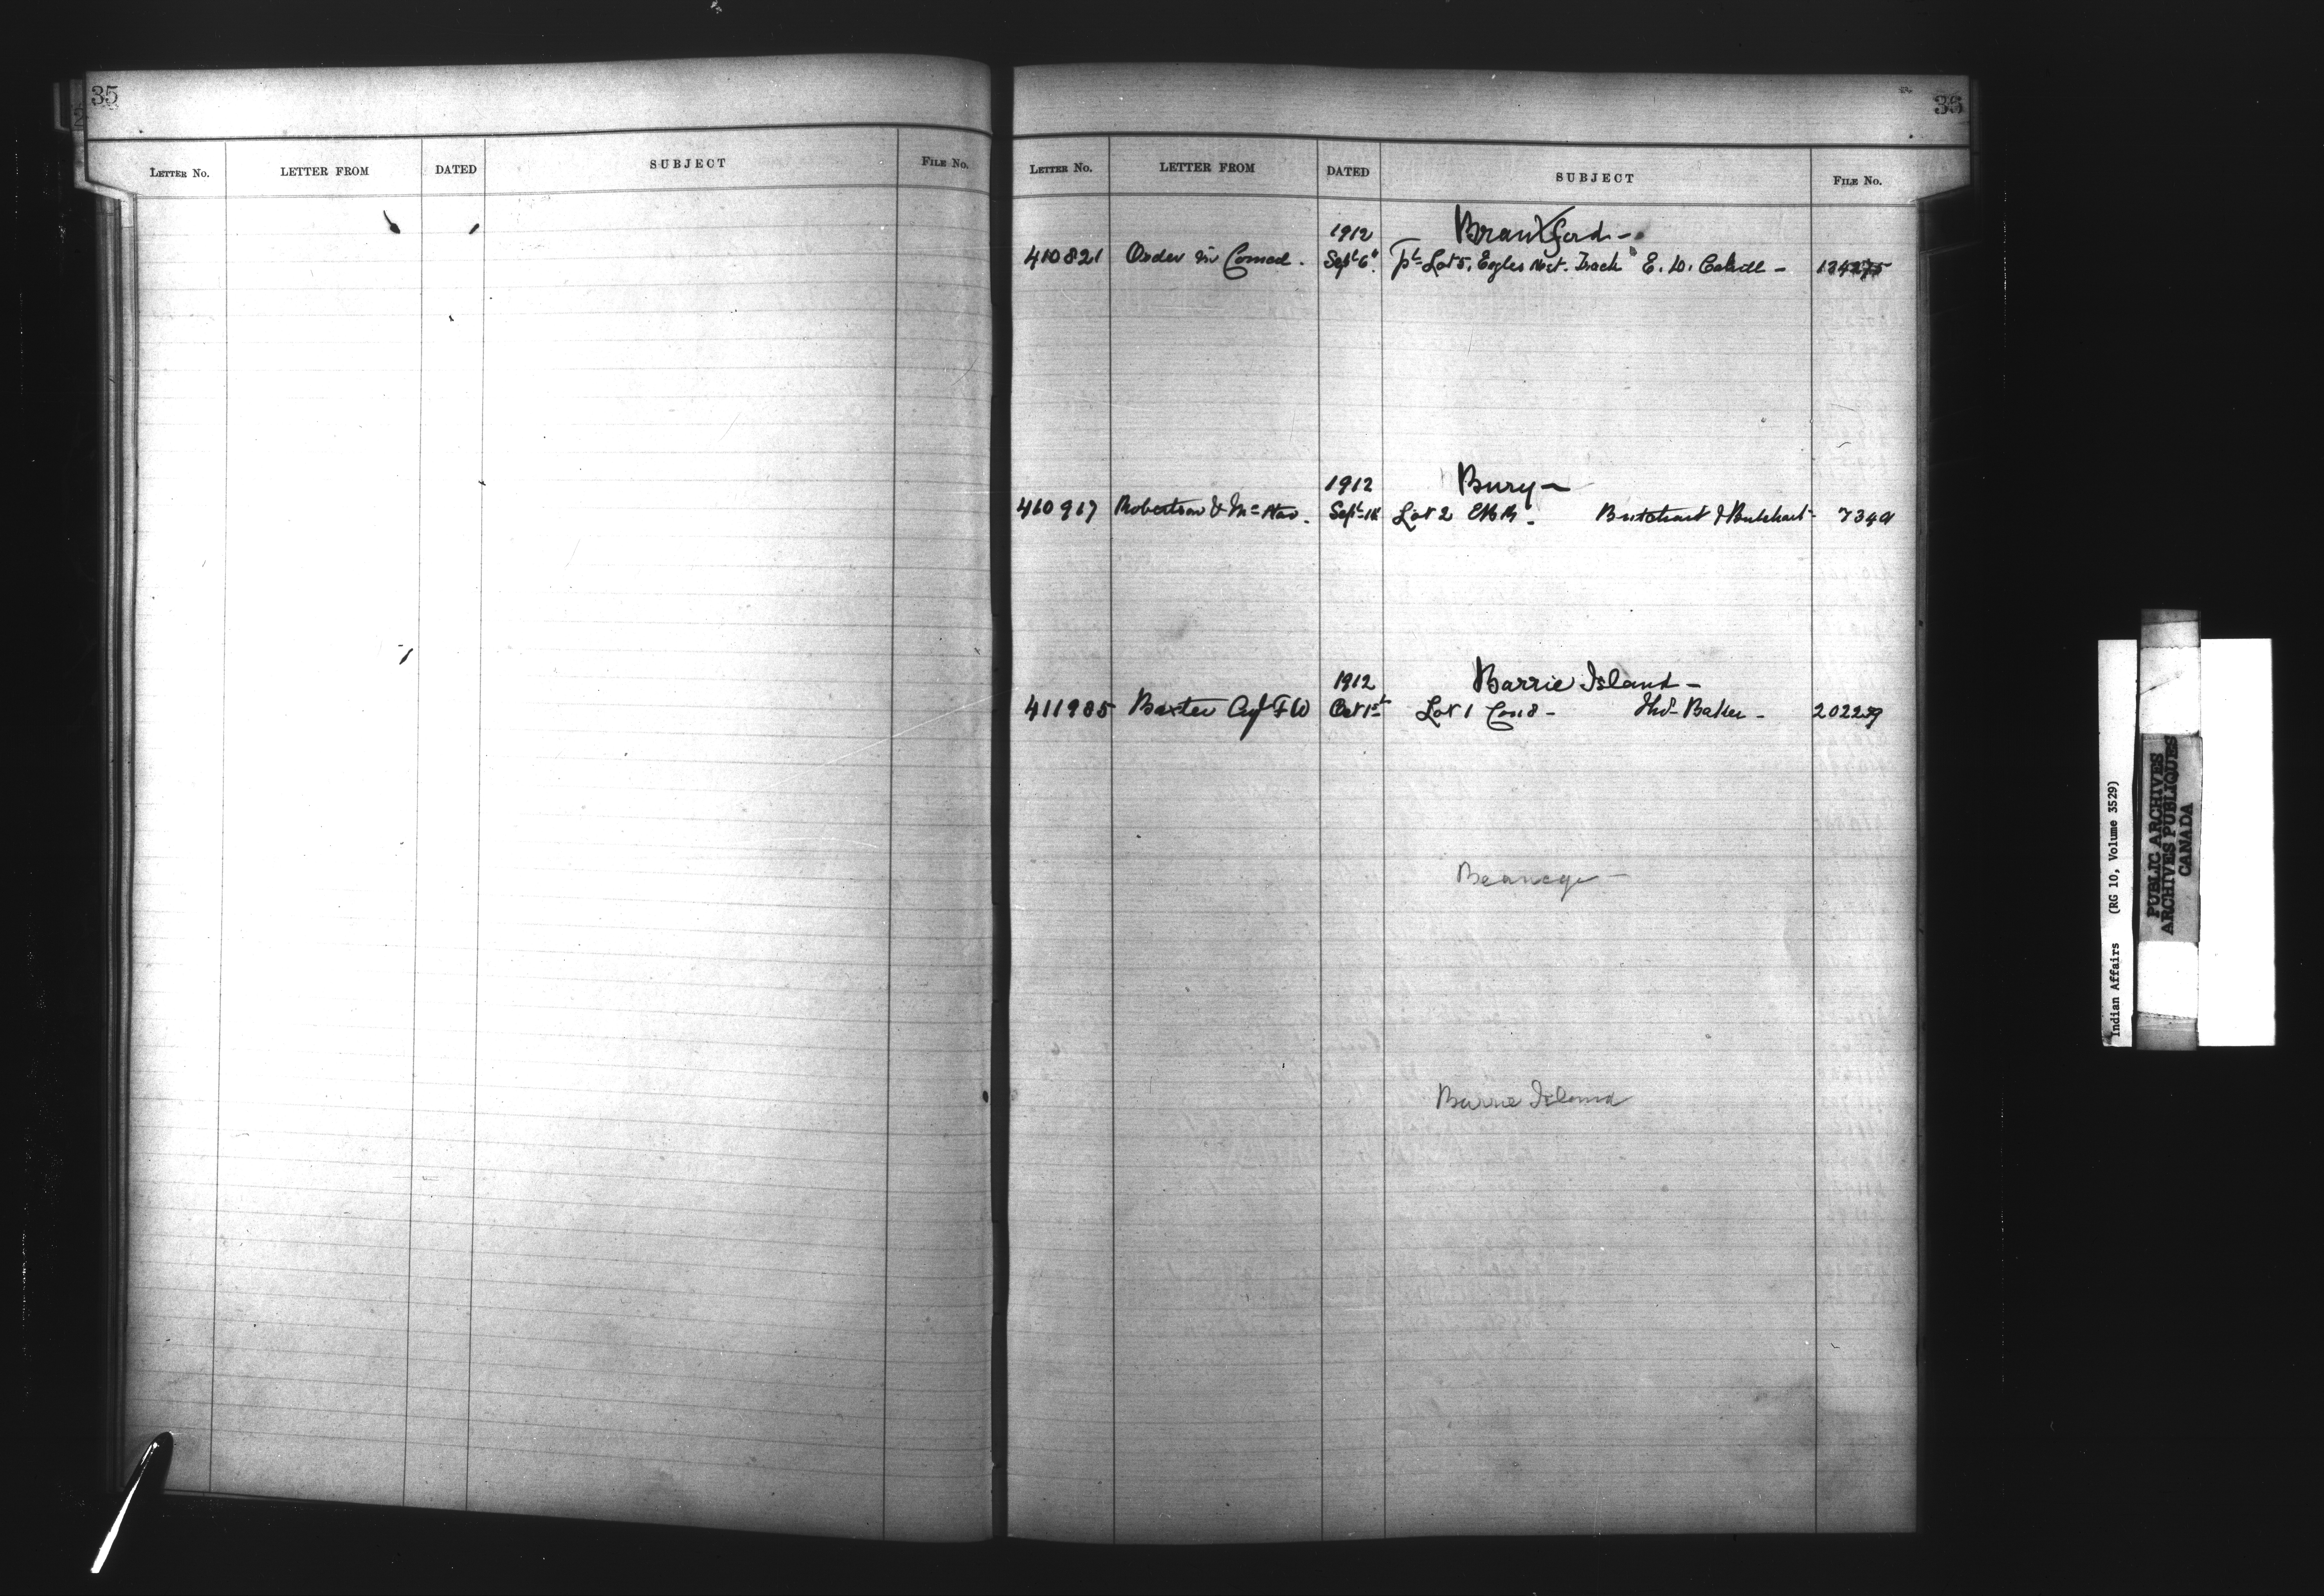 35
LETTER No. LETTER FROM DATED SUBJECT FILE No.
35
LETTER No. LETTER FROM DATED SUBJECT FILE No.
1912 Brantford -
410821 Order in Council. Sept 6" Pt Lot 5, Eagles Nest. Tract E. D. -
1912 Bury -
410917 Robertson & Sept 18 Lot 2 Butchart & Butchart - 734
1912 Barrie Island -
411985 Baxter F W Oct 1st Lot 1 Con 8 - Thos Baker - 20229
Barrie Island
Indian Affairs (RG 10, Volume 3529)
PUBLIC ARCHIVES
ARCHIVES PUBLIQUES
CANADA